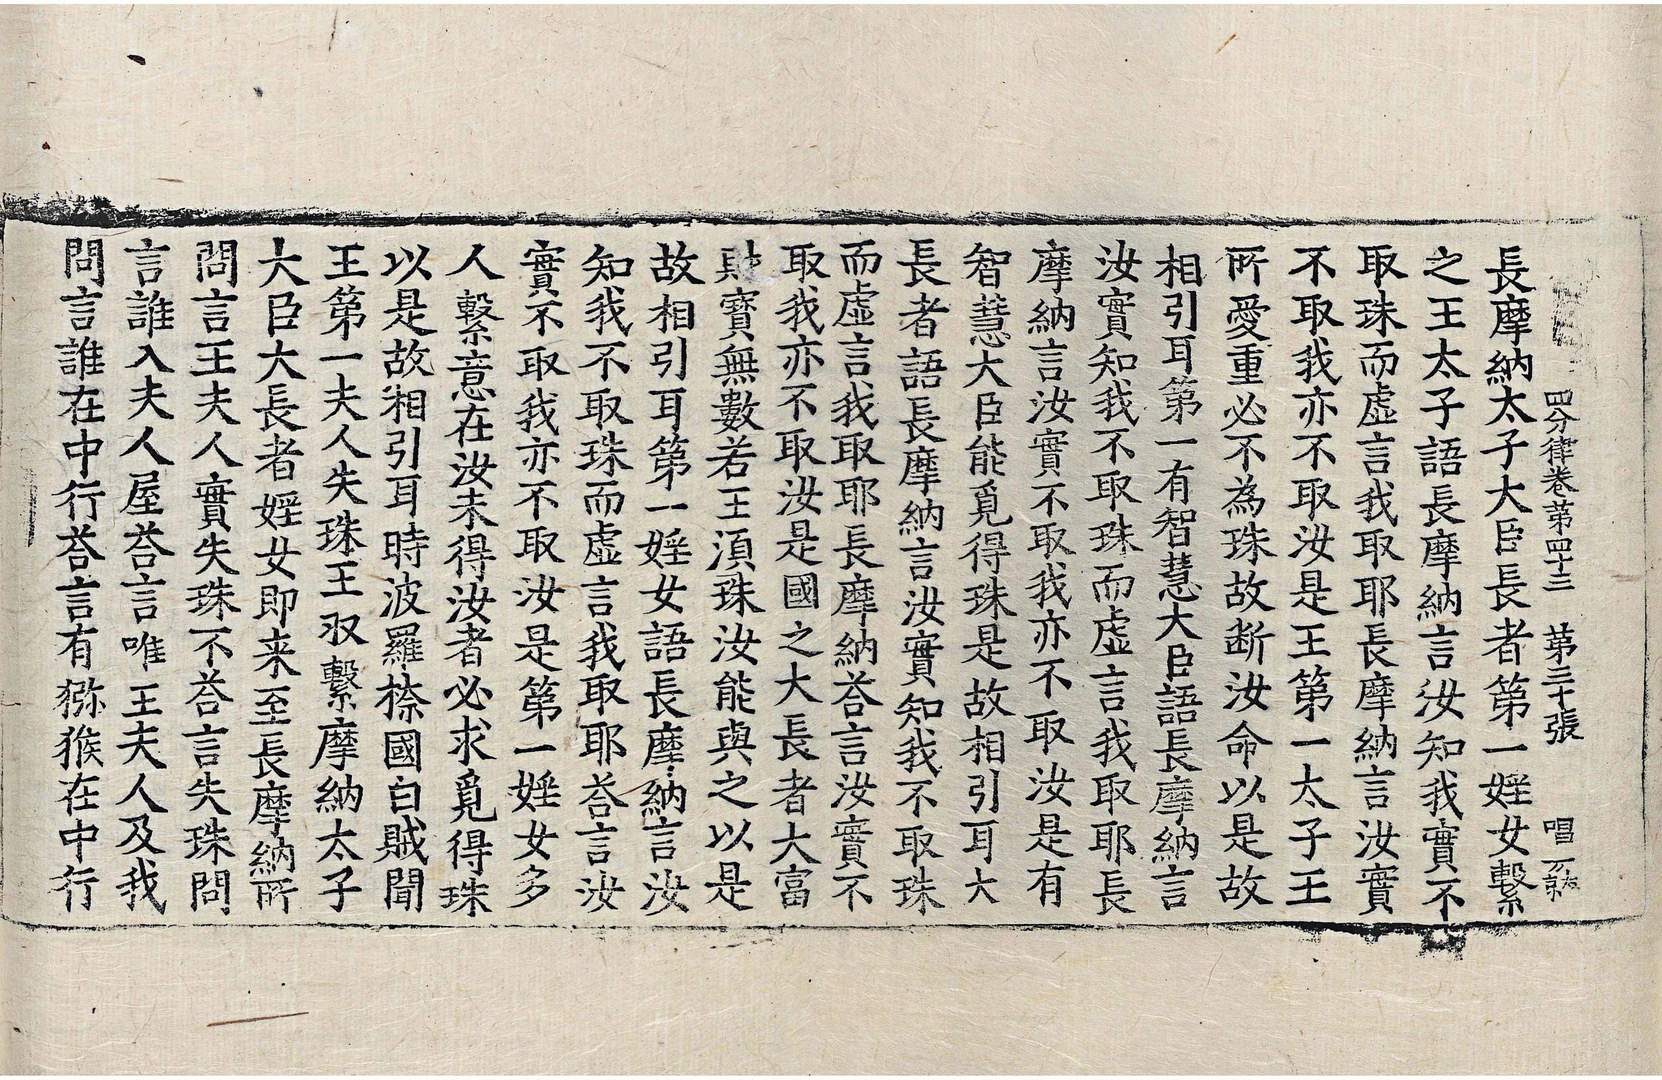 四分律卷第四十三 第三十張 唱
長摩納太子大臣長者第一婬女繫
之王太子語長摩納言汝知我實不
取珠而虛言我取耶長摩納言汝實
不取我亦不取汝是王第一太子王
所愛重必不為珠故断汝命以是故
相引耳第一有智慧大臣語長摩納言
汝實知我不取珠而虛言我取耶長
摩納言汝實不取我亦不取汝是有
智慧大臣能覓得珠是故相引耳大
長者語長摩納言汝實知我不取珠
而虛言我取耶長摩納荅言汝實不
取我亦不取汝是國之大長者大富
財寶無數若王湏珠汝能與之以是
故相引耳第一婬女語長摩納言汝
知我不取珠而虛言我取耶荅言汝
實不取我亦不取汝是第一婬女多
人繫意在汝未得汝者必求覓得珠
以是故相引耳時波羅㮈國白賊聞
王第一夫人失珠王収繫摩納太子
大臣大長者婬女即来至長摩納所
問言王夫人實失珠不荅言失珠問
言誰入夫人屋荅言唯王夫人及我
問言誰在中行荅言有獼猴在中行